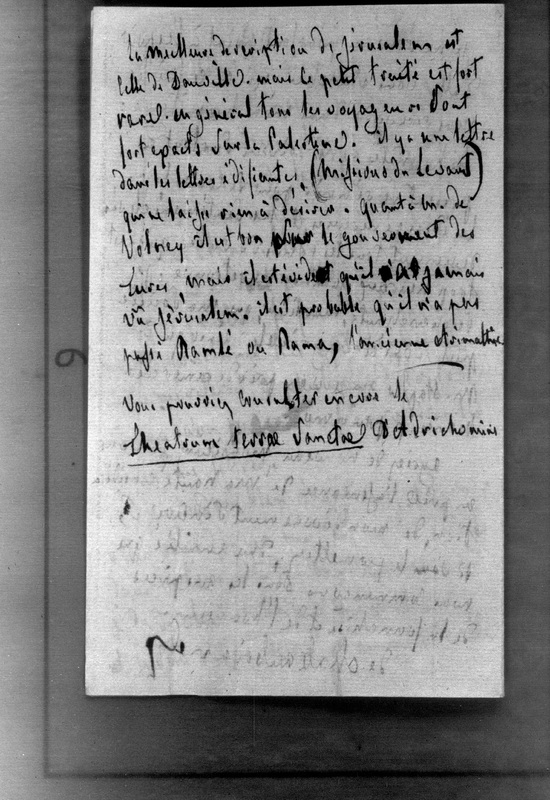 La meilleure description de jérusalem est
celle de Danville. mais ce petit traité est fort
rare. en général tous les voyageurs sont
fort exacts sur la Palestine. il y a une lettre
dans les lettres édifiantes (Missions du Levant)
qui ne laisse rien à désirer. quant à M. de
Volney il est bon pour le gouvernement des
turcs mais il est évident qu'il n'a jamais
vu jérusalem. il est probable qu'il n'a pas
passé Ramlé ou Rama, l'ancienne Arimathie
Vous pourriez consulter encore le
theatrum terrae Sanctae D'Adrichomius